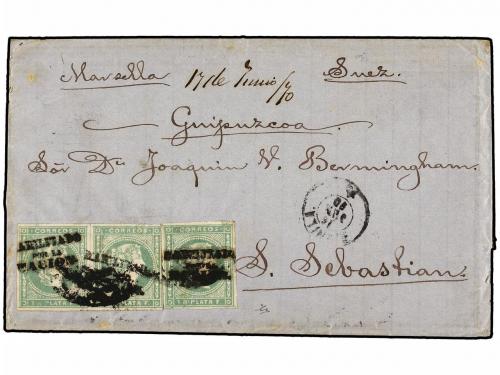 Marsella 17 de Junio/70 Suez.
Guipuzcoa
Sór Dn Joaquin V. Bermingham.
S. Sebastian.
CORREOS CORREOS CORREOS
HABILITADO
POR LA
NACION
PLATA F. PLATA F. PLATA F.